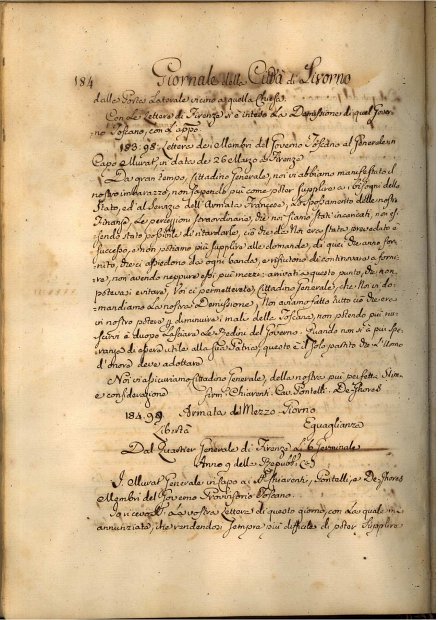 184 Giornale della Città di Livorno
della Porta Laterale vicino a quella Chiesa.
Con le Lettere di Firenze si è inteso la Demissione di quel Gover-
no Toscano, con l'app.
183.98. Lettera dei Membri del Governo Toscano al Generale in
Capo Murat, in data de 26 Marzo da Firenze
Da gran tempo, Cittadino Generale, noi vi abbiamo manifestato il
nostro imbarazzo, non sapendo più come poter supplire ai bisogni dello
Stato, ed al servizio dell'Armata Francese, lo spossamento delle nostre
Finanze, le percezioni straordinarie, che noi siamo stati incaricati, non es-
sendo stato possibile di ritardarle, ciò che da Noi era stato preveduto è
successo, e non possiamo più supplire alle domande, di quei che anno for-
nito, che ci assediono da ogni banda, e rifiutono di continuare a forni-
re, non avendo neppure essi più mezzi: arrivati a questo punto, che non
potevasi evitare, Voi ci permetterete, Cittadino Generale, che Noi vi do-
mandiamo la nostra Demissione, Noi aviamo fatto tutto ciò che era
in nostro potere a diminuire i mali della Toscana, non potendo più riu-
scirvi è d'uopo lasciare le Redini del Governo. Quando non si à più spe-
ranza di essere utile alla sua Patria, questo è il solo partito che l'Uomo
d'onore deve adottare
Noi vi assicuriamo Cittadino Generale, della nostra più perfetta Stima,
e considerazione Chiarenti. Cav. Pontelli. De Ghores
184.98 Armata di Mezzo-Giorno
Libertà Eguaglianza
Dal Quartier Generale di Firenze li 6 Germinale
Anno 9 della Repubb.
J. Murat Generale in Capo ai Chiarenti, Pontelli, e De Ghores
Membri del Governo Provvisorio Toscano.
Io ricevo la vostra Lettera di questo giorno, con la quale mi
annunziate, che rendendosi sempre più difficile di poter supplire